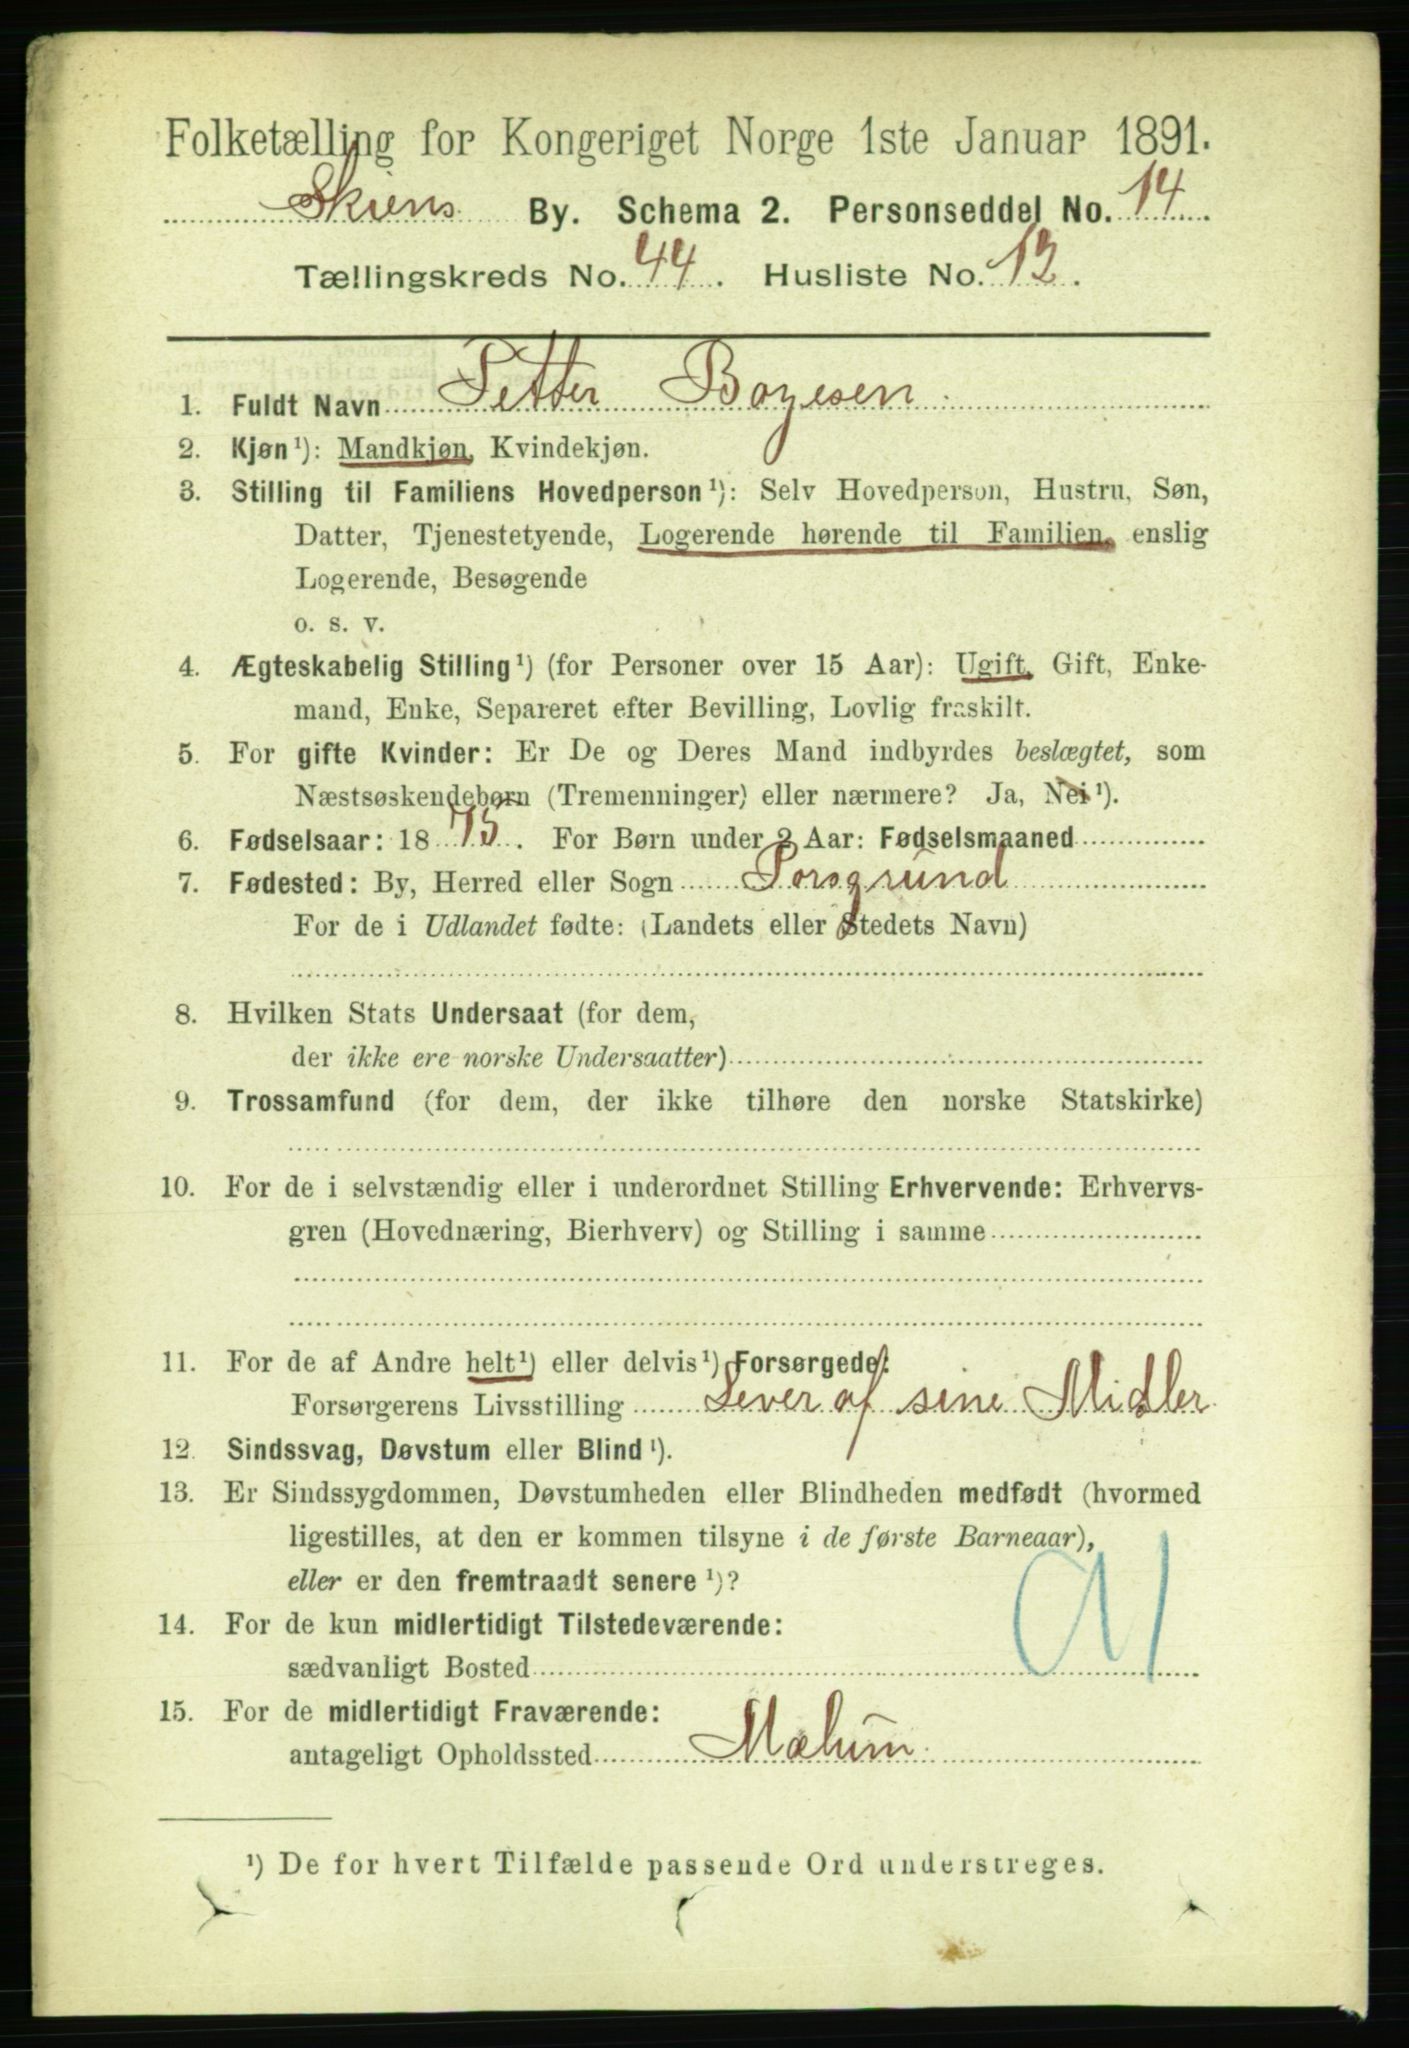 Folketælling for Kongeriget Norge 1ste Januar 1891.
Skiens By. Schema 2. Personseddel No. 14
Tællingskreds No. 44. Husliste No. 13.
1. Fuldt Navn Petter Boyesen
2. Kjøn¹): Mandkjøn, Kvindekjøn.
3. Stilling til Familiens Hovedperson¹): Selv Hovedperson, Hustru, Søn,
Datter, Tjenestetyende, Logerende hørende til Familien, enslig
Logerende, Besøgende
o. s. v.
4. Ægteskabelig Stilling¹) (for Personer over 15 Aar): Ugift, Gift, Enke-
mand, Enke, Separeret efter Bevilling, Lovlig fraskilt.
5. For gifte Kvinder: Er De og Deres Mand indbyrdes beslægtet, som
Næstsøskendebørn (Tremenninger) eller nærmere? Ja, Nei¹).
6. Fødselsaar: 1875. For Børn under 2 Aar: Fødselsmaaned
7. Fødested: By, Herred eller Sogn Porsgrund
For de i Udlandet fødte: (Landets eller Stedets Navn)
8. Hvilken Stats Undersaat (for dem,
der ikke ere norske Undersaatter)
9. Trossamfund (for dem, der ikke tilhøre den norske Statskirke)
10. For de i selvstændig eller i underordnet Stilling Erhvervende: Erhvervs-
gren (Hovednæring, Bierhverv) og Stilling i samme
11. For de af Andre helt¹) eller delvis¹) Forsørgede:
Forsørgerens Livsstilling Lever af sine Midler
12. Sindssvag, Døvstum eller Blind¹).
13. Er Sindssygdommen, Døvstumheden eller Blindheden medfødt (hvormed
ligestilles, at den er kommen tilsyne i de første Barneaar),
eller er den fremtraadt senere¹)?
14. For de kun midlertidigt Tilstedeværende:
sædvanligt Bosted
15. For de midlertidigt Fraværende:
antageligt Opholdssted Mælum
¹) De for hvert Tilfælde passende Ord understreges.